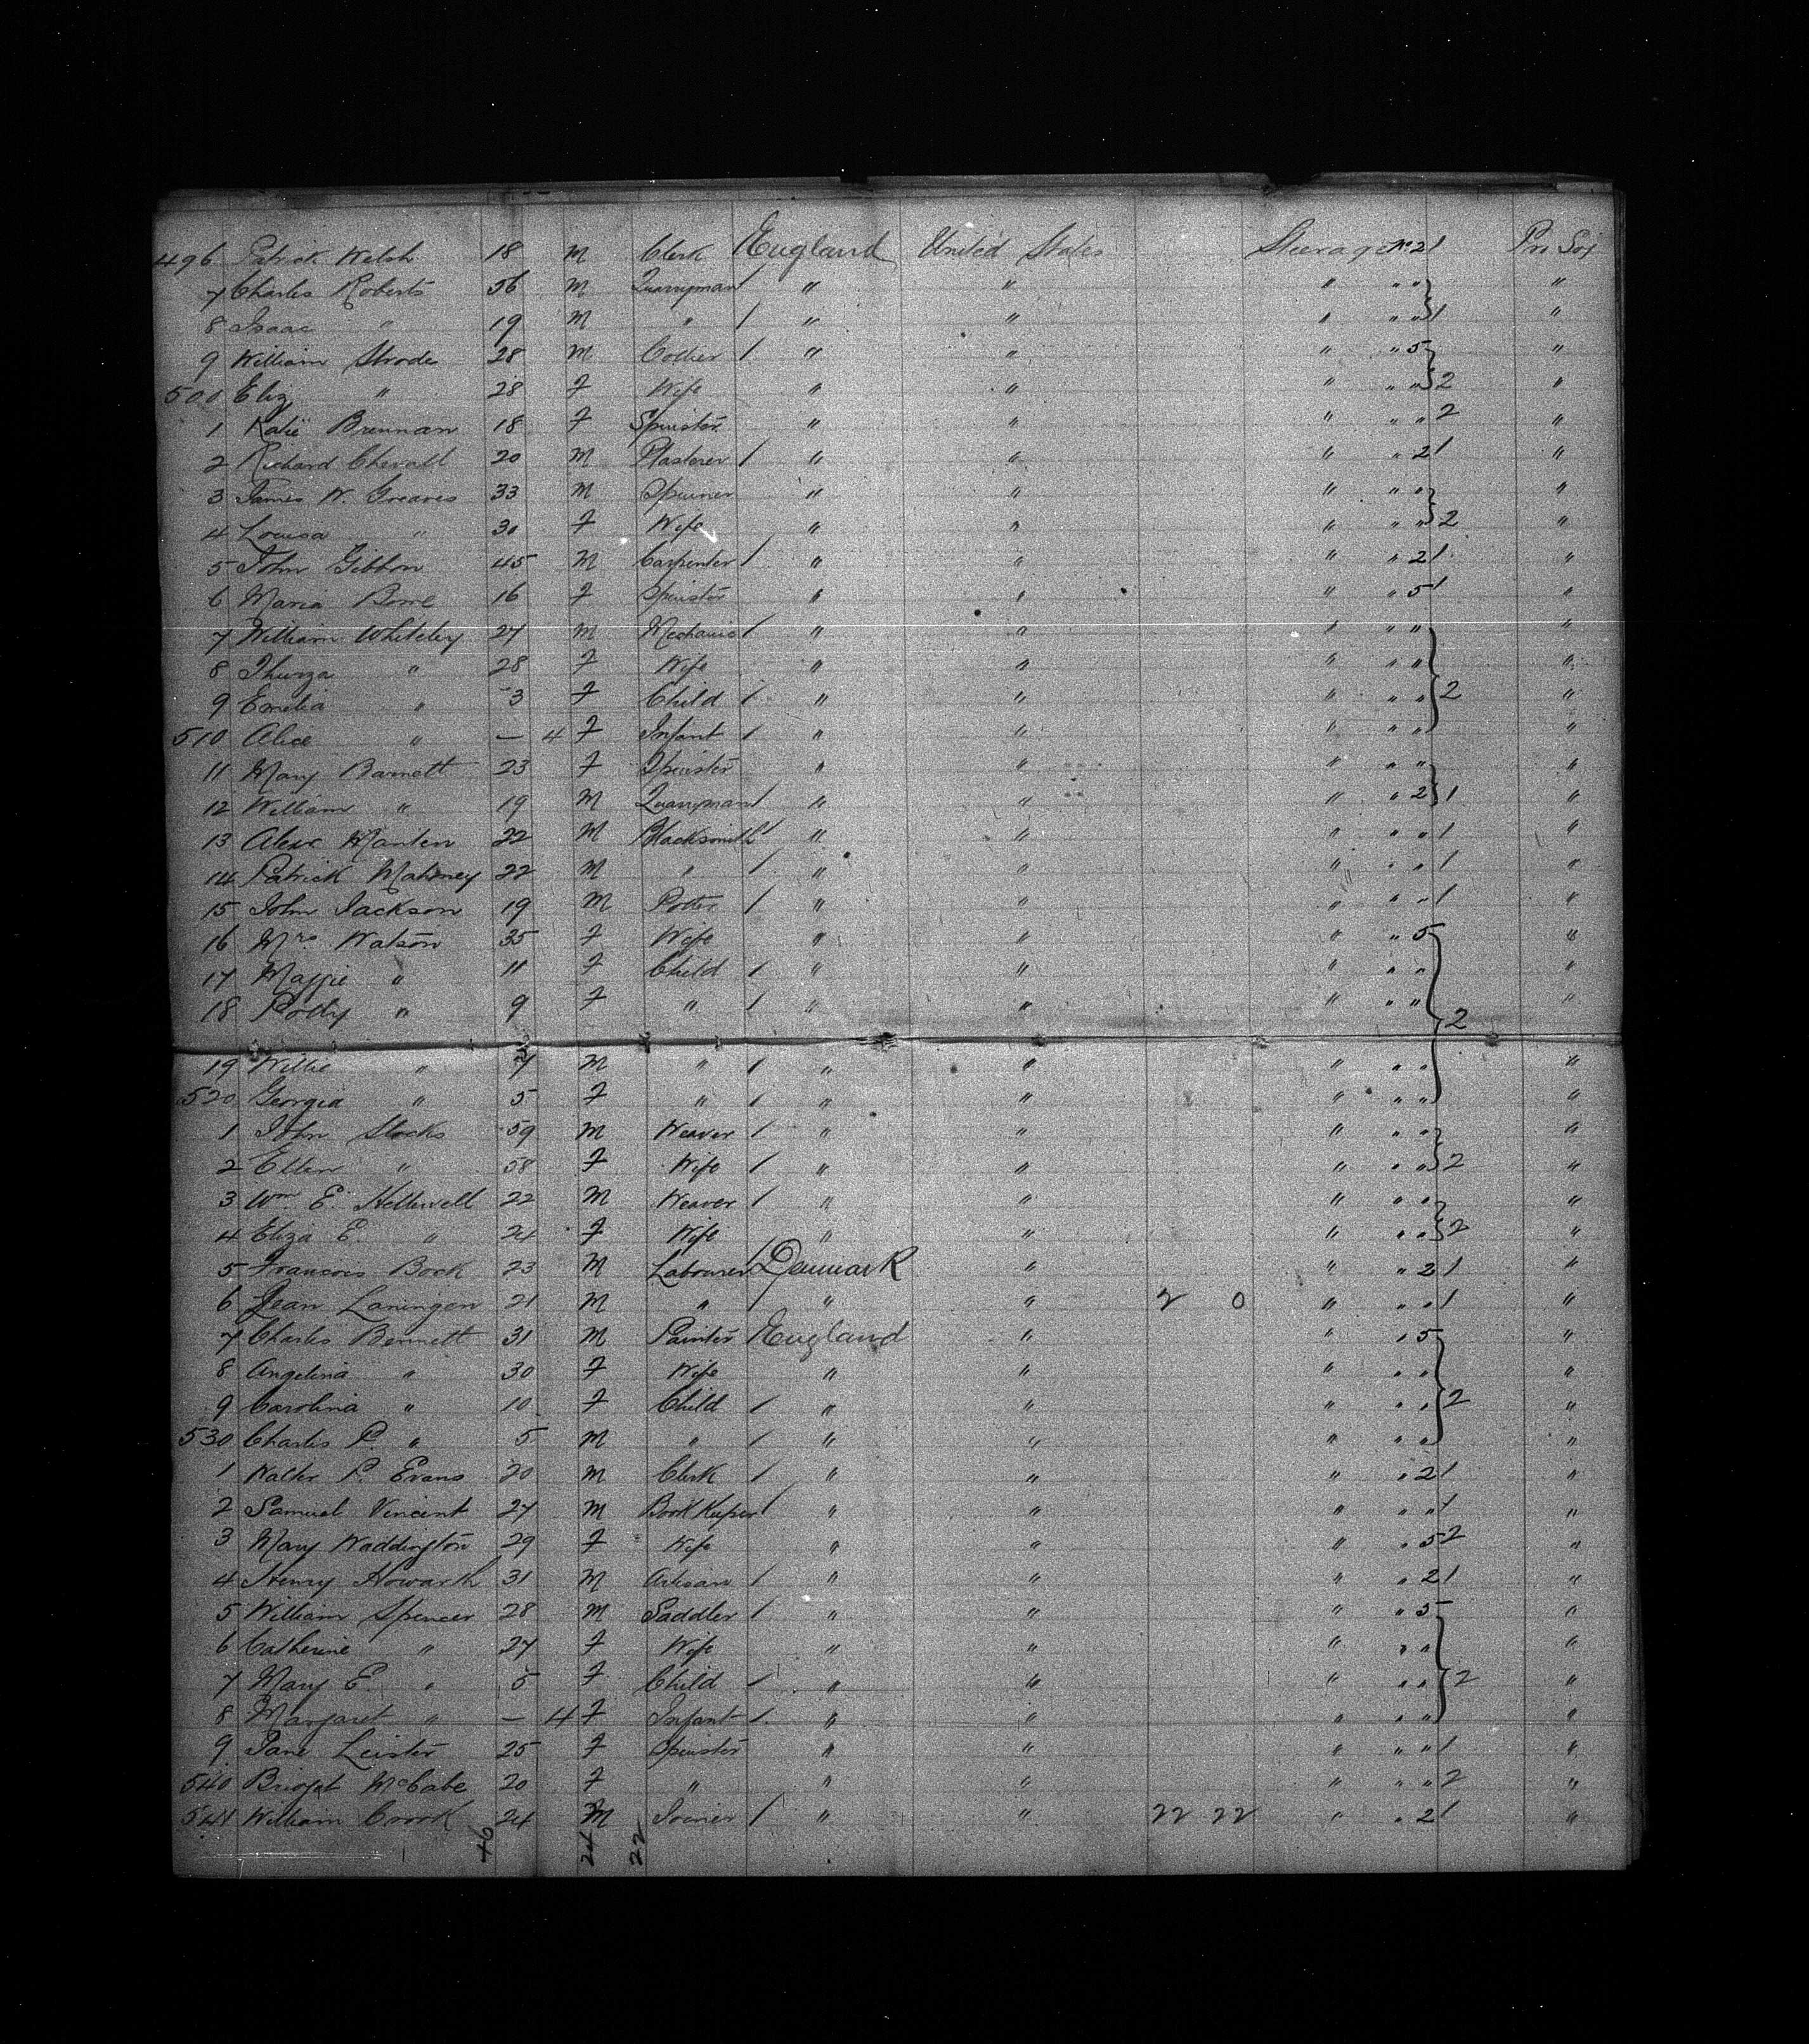 496 Patrick Welsh 18 M Clerk England United States Steerage No 2 1 Pro Soj
7 Charles Roberts 56 M Quarryman / " " " " " "
8 Isaac " 19 M " / " " " " " 1 "
9 William Strode 28 M Collier / " " " " 5 "
500 Eliz " 28 F Wife " " " " " 2 "
1 Katie Brennan 18 F Spinster " " " " " 2 "
2 Richard Chevall 20 M Plasterer / " " " " 2 1 "
3 James W. Greaves 33 M Spinner " " " " " "
4 Louisa " 30 F Wife " " " " " 2 "
5 John Gibbon 45 M Carpenter / " " " " 2 1 "
6 Maria 16 F Spinster " " " " 5 1 "
7 William Whiteley 27 M Mechanic / " " " " " "
8 Thurza " 28 F Wife " " " " " "
9 Emelia " 3 F Child / " " " " " 2 "
510 Alice " — 4 F Infant / " " " " " "
11 Mary Barnett 23 F Spinster " " " " " "
12 William " 19 M Quarryman / " " " " 2 1 "
13 Alexr Manten 22 M Blacksmith / " " " " " 1 "
14 Patrick Mahoney 22 M " / " " " " " 1 "
15 John Jackson 19 M Potter / " " " " " 1 "
16 Mrs Watson 35 F Wife " " " " 5 "
17 Maggie " 11 F Child / " " " " " "
18 Polly " 9 F " / " " " " " 2 "
19 Willie " 7 M " / " " " " " "
520 Georgia " 5 F " / " " " " " "
1 John Stocks 59 M Weaver / " " " " " "
2 Ellen " 58 F Wife / " " " " " 2 "
3 Wm E. Helliwell 22 M Weaver / " " " " " "
4 Eliza E. " 24 F Wife " " " " " 2 "
5 Francois Bock 23 M Labourer / Denmark " " " 2 1 "
6 Jean Laningen 21 M " / " " 2 0 " " " 1 "
7 Charles Bennett 31 M Painter England " " " 5 "
8 Angelina " 30 F Wife " " " " " "
9 Carolina " 10 F Child / " " " " " 2 "
530 Charles P. " 5 M " / " " " " " "
1 Walter P. Evans 20 M Clerk / " " " " 2 1 "
2 Samuel Vincent 27 M Book Keeper / " " " " " 1 "
3 Mary Waddington 29 F Wife " " " " 5 2 "
4 Henry Howarth 31 M Artisan / " " " " 2 1 "
5 William Spencer 28 M Saddler / " " " " 5 "
6 Catherine " 27 F Wife " " " " " "
7 Mary E. " 5 F Child / " " " " " 2 "
8 Margaret " — 4 F Infant / " " " " " "
9 Jane Leister 25 F Spinster " " " " " 1 "
540 Bridget McCabe 20 F " " " " " " 2 "
541 William Crook 24 M Joiner / " " 22 22 " " 2 1 "
46 24 22